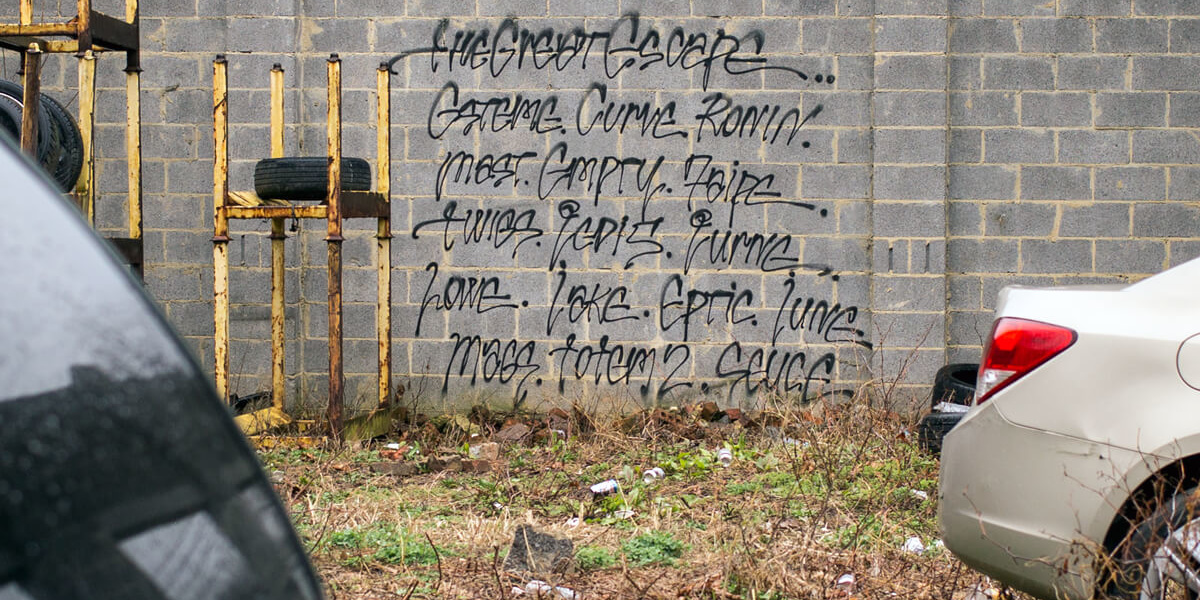 the Great Escape...
Gsteme. Curve. Ronin.
Most. Empty. Faipe.
twigs. Jedi5. Jurne.
Lowe. Jake. Eptic. June.
Mags. totem2. Sauce